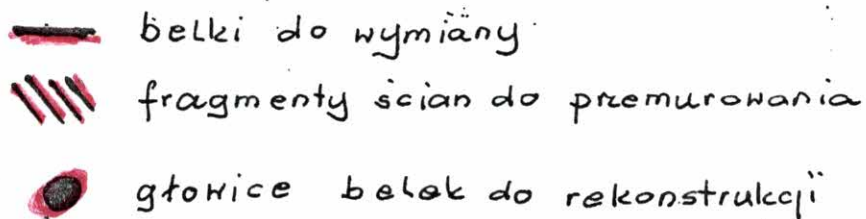 belki do wymiany
fragmenty ścian do przemurowania
głowice belek do rekonstrukcji